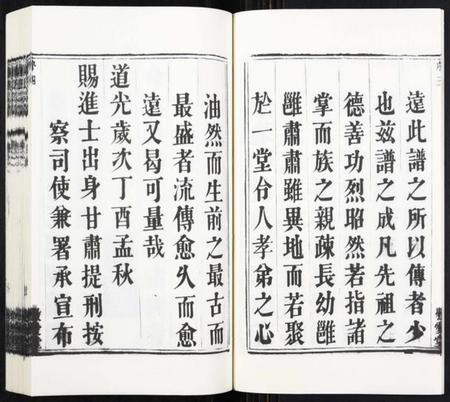 遠此譜之所以傳者少
也茲譜之成凡先祖之
德善功烈昭然若指諸
掌而族之親疎長幼雝
雝肅肅雖異地而若聚
於一堂令人孝弟之心
序三
油然而生前之最古而
最盛者流傳愈久而愈
遠又曷可量哉
道光歲次丁酉孟秋
賜進士出身甘肅提刑按
察司使兼署承宣布
序四